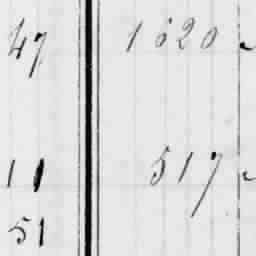 47 1620
11 517
51